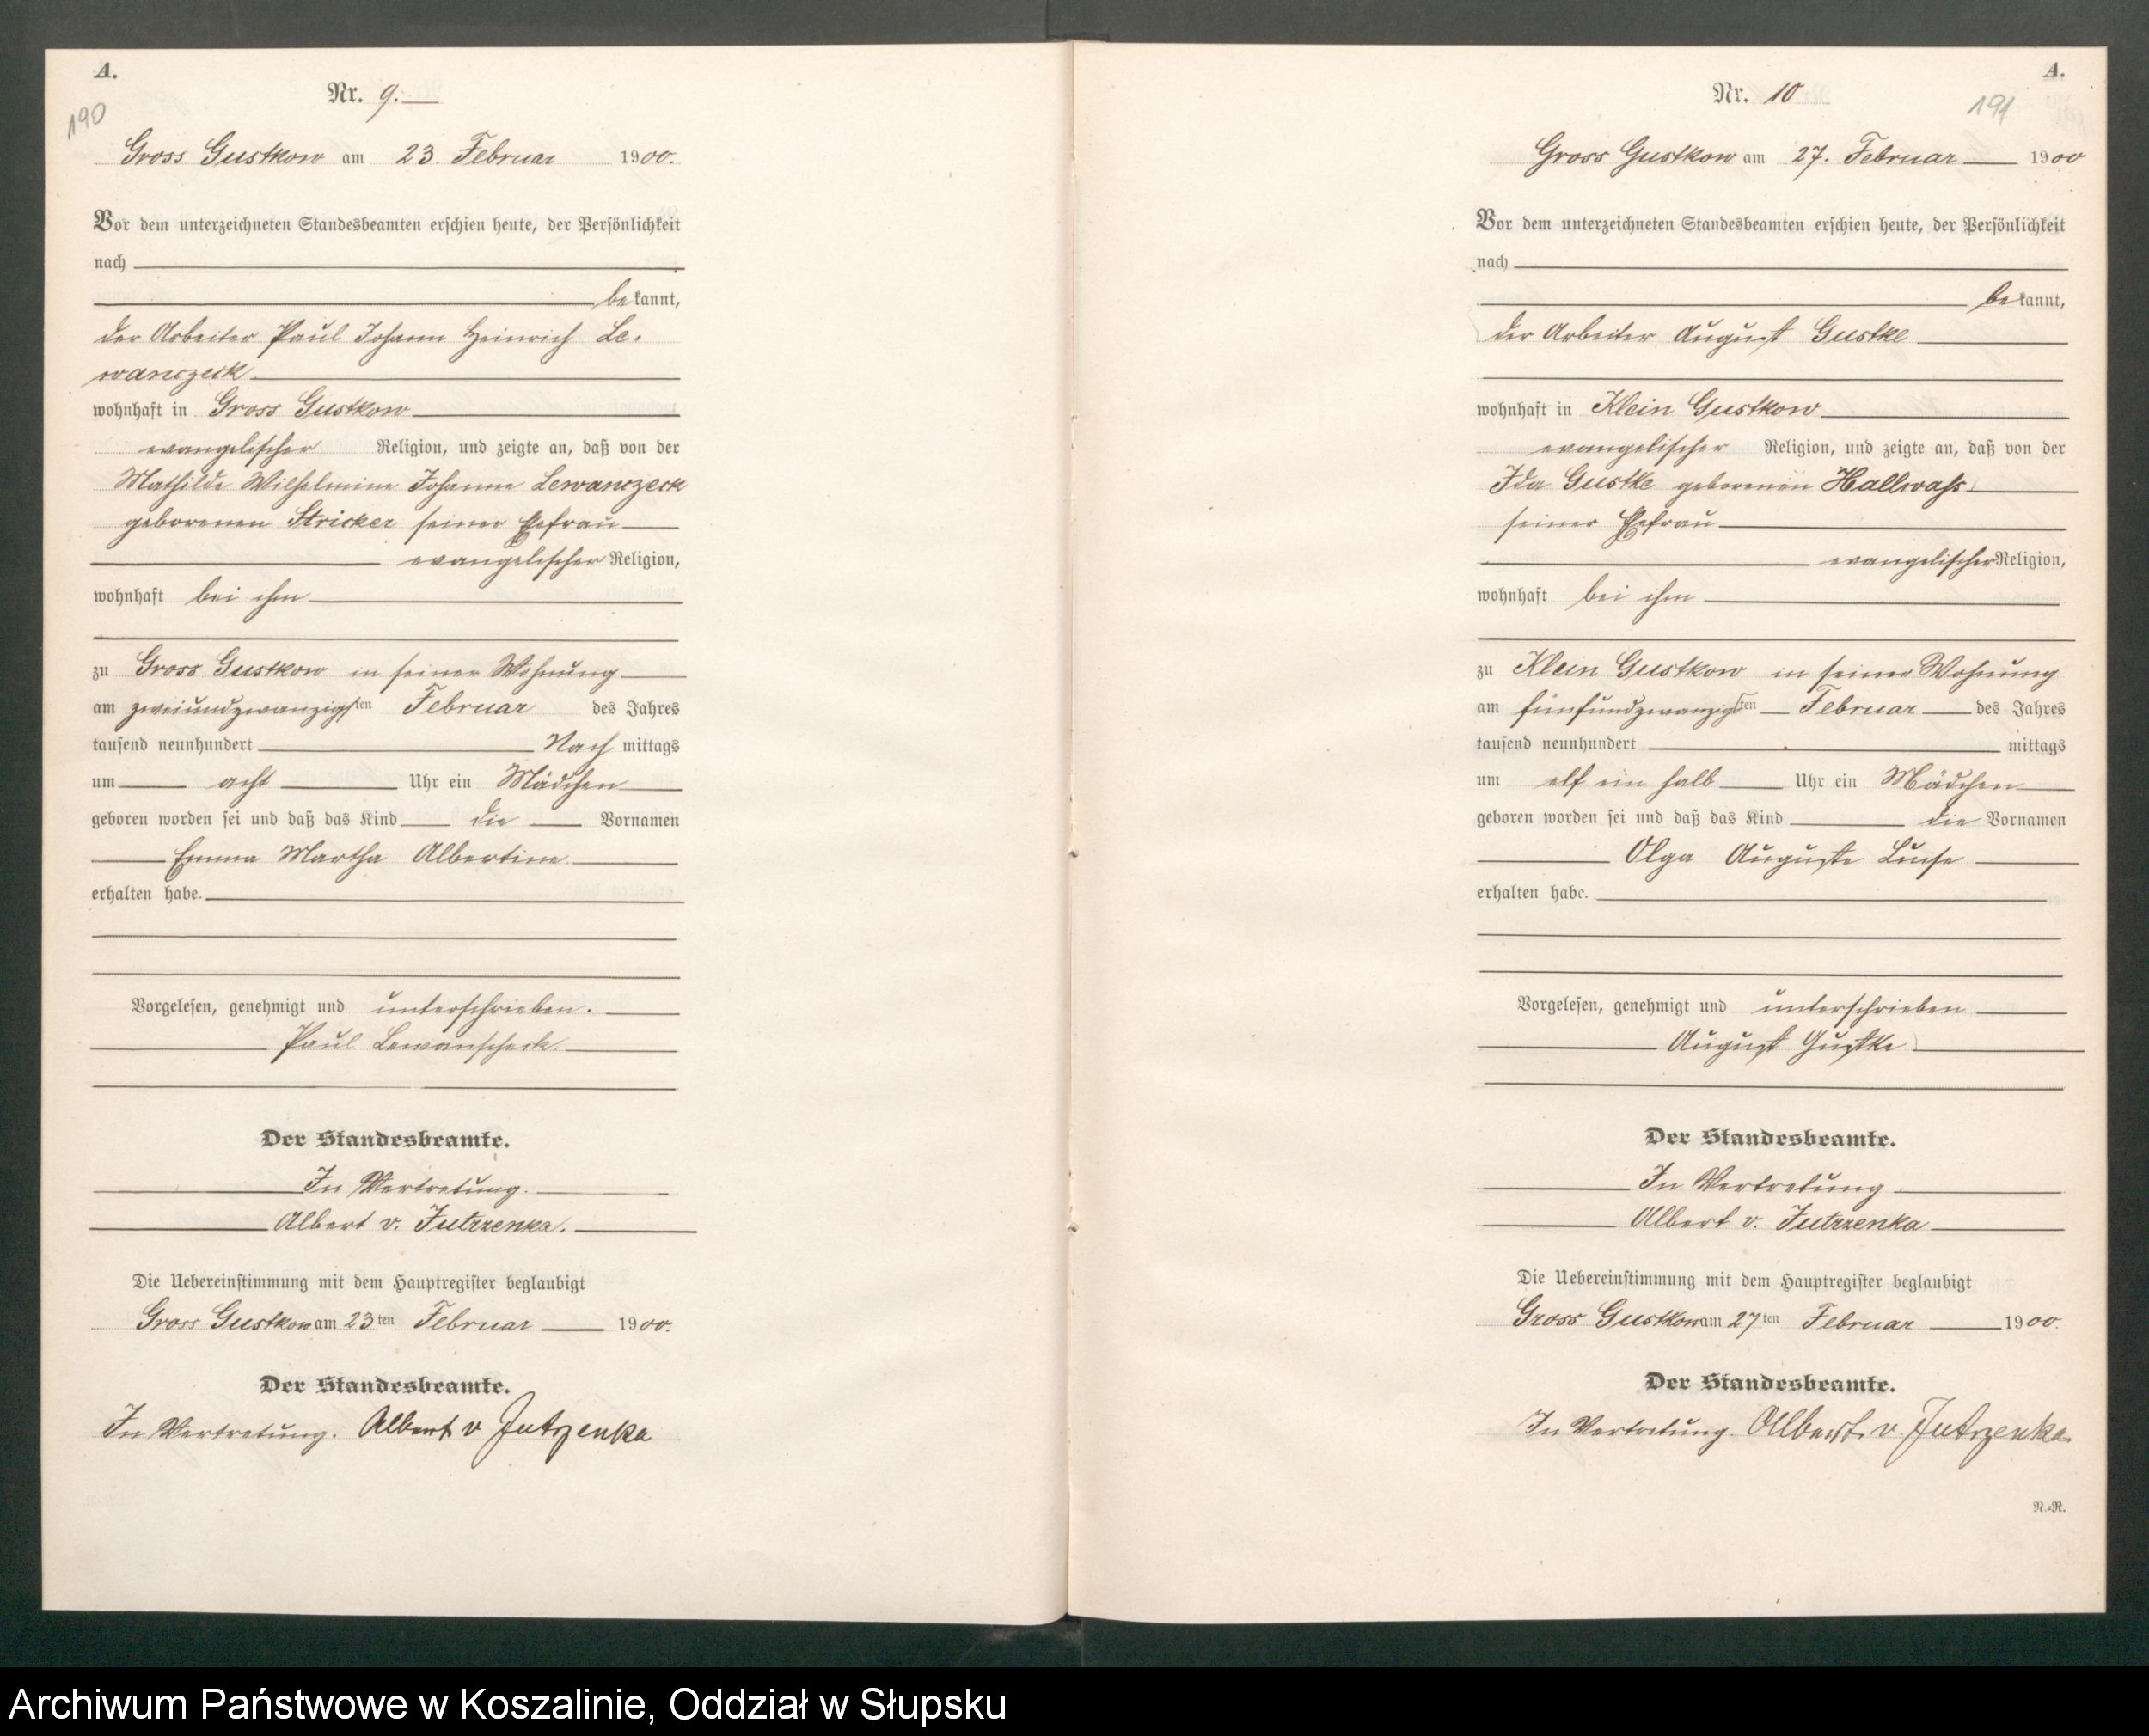 A.
190
Nr. 9.
Gross Gustkow am 23. Februar 1900.
Vor dem unterzeichneten Standesbeamten erschien heute, der Persönlichkeit
nach
bekannt,
der Arbeiter Paul Johann Heinrich Le-
wanczeck
wohnhaft in Gross Gustkow
evangelischer Religion, und zeigte an, daß von der
Mathilde Wilhelmine Johanne Lewanczeck
geborenen Stricker seiner Ehefrau
evangelischer Religion,
wohnhaft bei ihm
zu Gross Gustkow in seiner Wohnung
am zweiundzwanzigsten Februar des Jahres
tausend neunhundert Nach mittags
um acht Uhr ein Mädchen
geboren worden sei und daß das Kind die Vornamen
Emma Martha Albertine
erhalten habe.
Vorgelesen, genehmigt und unterschrieben.
Paul Lewanscheck.
Der Standesbeamte.
In Vertretung.
Albert v. Jutrzenka.
Die Uebereinstimmung mit dem Hauptregister beglaubigt
Gross Gustkow am 23ten Februar 1900.
Der Standesbeamte.
In Vertretung. Albert v Jutrzenka
A.
191
Nr. 10
Gross Gustkow am 27. Februar 1900
Vor dem unterzeichneten Standesbeamten erschien heute, der Persönlichkeit
nach
bekannt,
der Arbeiter August Gustke
wohnhaft in Klein Gustkow
evangelischer Religion, und zeigte an, daß von der
Ida Gustke geborenen Hallwaß
seiner Ehefrau
evangelischer Religion,
wohnhaft bei ihm
zu Klein Gustkow in seiner Wohnung
am fünfundzwanzigsten Februar des Jahres
tausend neunhundert mittags
um elf ein halb Uhr ein Mädchen
geboren worden sei und daß das Kind die Vornamen
Olga Auguste Luise
erhalten habe.
Vorgelesen, genehmigt und unterschrieben
August Gustke
Der Standesbeamte.
In Vertretung
Albert v. Jutrzenka
Die Uebereinstimmung mit dem Hauptregister beglaubigt
Gross Gustkow am 27ten Februar 1900.
Der Standesbeamte.
In Vertretung. Albert v. Jutrzenka
N.=R.
Archiwum Państwowe w Koszalinie, Oddział w Słupsku